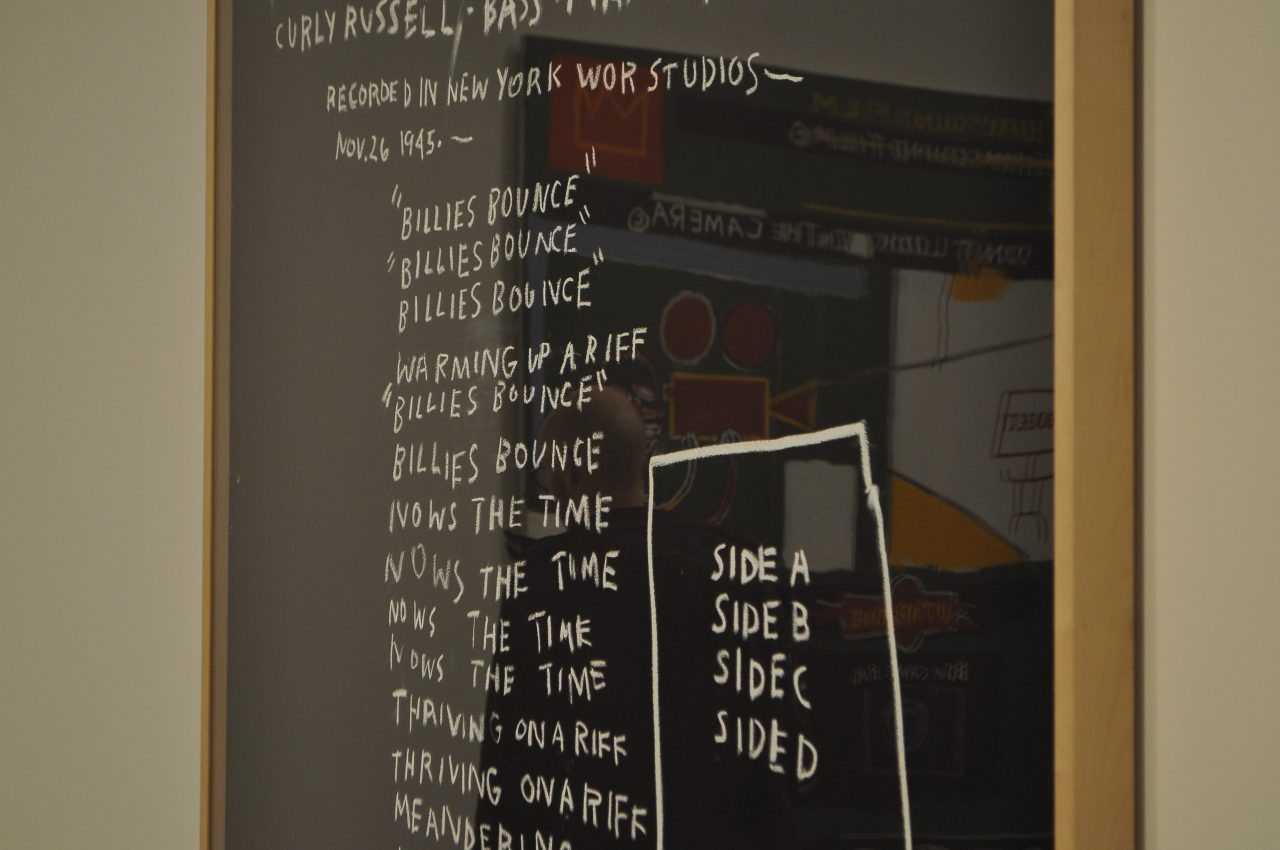 CURLY RUSSELL, · BASS ·
RECORDED IN NEW YORK WOR STUDIOS—
NOV.26 1945. —
"BILLIES BOUNCE"
"BILLIES BOUNCE"
BILLIES BOUNCE"
WARMING UP A RIFF
"BILLIES BOUNCE"
BILLIES BOUNCE
NOWS THE TIME
NOWS THE TIME
NOWS THE TIME
NOWS THE TIME
THRIVING ON A RIFF
THRIVING ON A RIFF
MEANDERING
SIDE A
SIDE B
SIDE C
SIDE D
THE CAMERA©